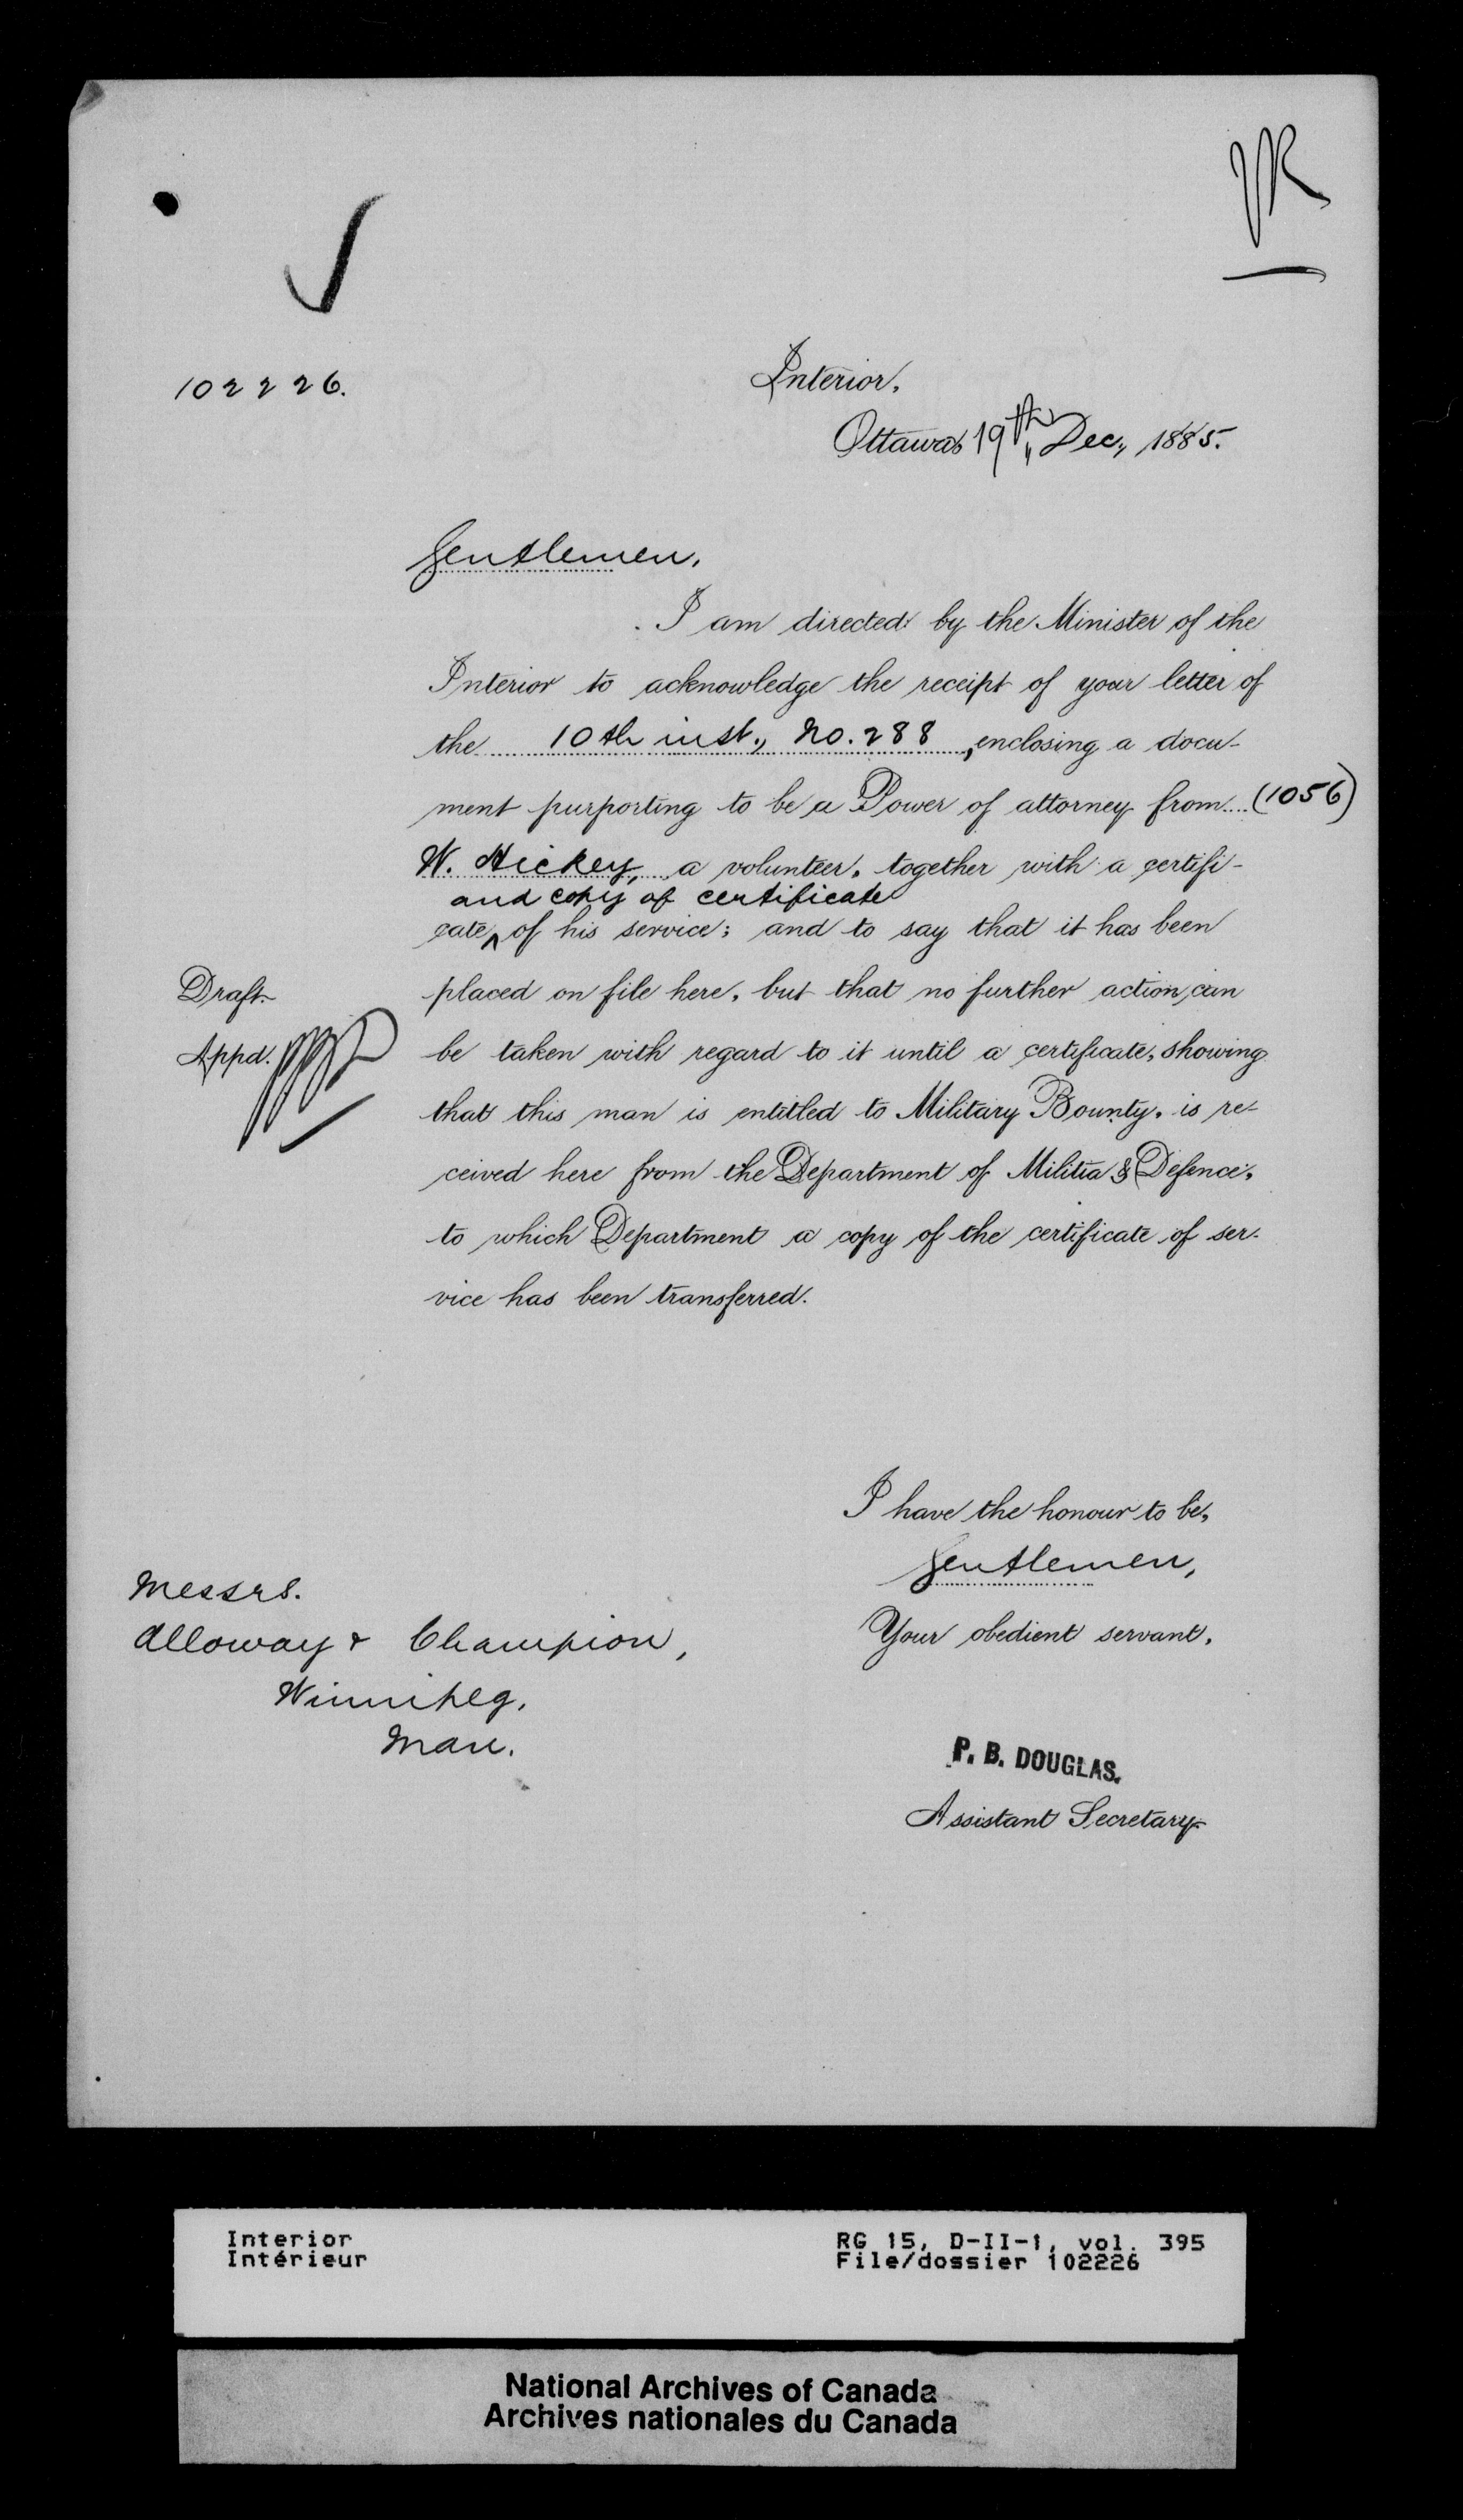 102226.
Interior,
Ottawa 19th Dec., 1885.
Gentlemen,
I am directed by the Minister of the
Interior to acknowledge the receipt of your letter of
the 10th inst., No. 288, enclosing a docu-
ment purporting to be a Power of attorney from (1056)
W. Hickey, a volunteer, together with a certifi-
and copy of certificate
cate ^ of his service; and to say that it has been
placed on file here, but that no further action can
be taken with regard to it until a certificate, showing
that this man is entitled to Military Bounty, is re-
ceived here from the Department of Militia & Defence,
to which Department a copy of the certificate of ser-
vice has been transferred.
Draft
Appd.
I have the honour to be,
Gentlemen,
Your obedient servant,
P. B. DOUGLAS.
Assistant Secretary
Messrs.
Alloway & Champion,
Winnipeg,
Man.
Interior
Intérieur
RG 15, D-II-1, vol. 395
File/dossier 102226
National Archives of Canada
Archives nationales du Canada